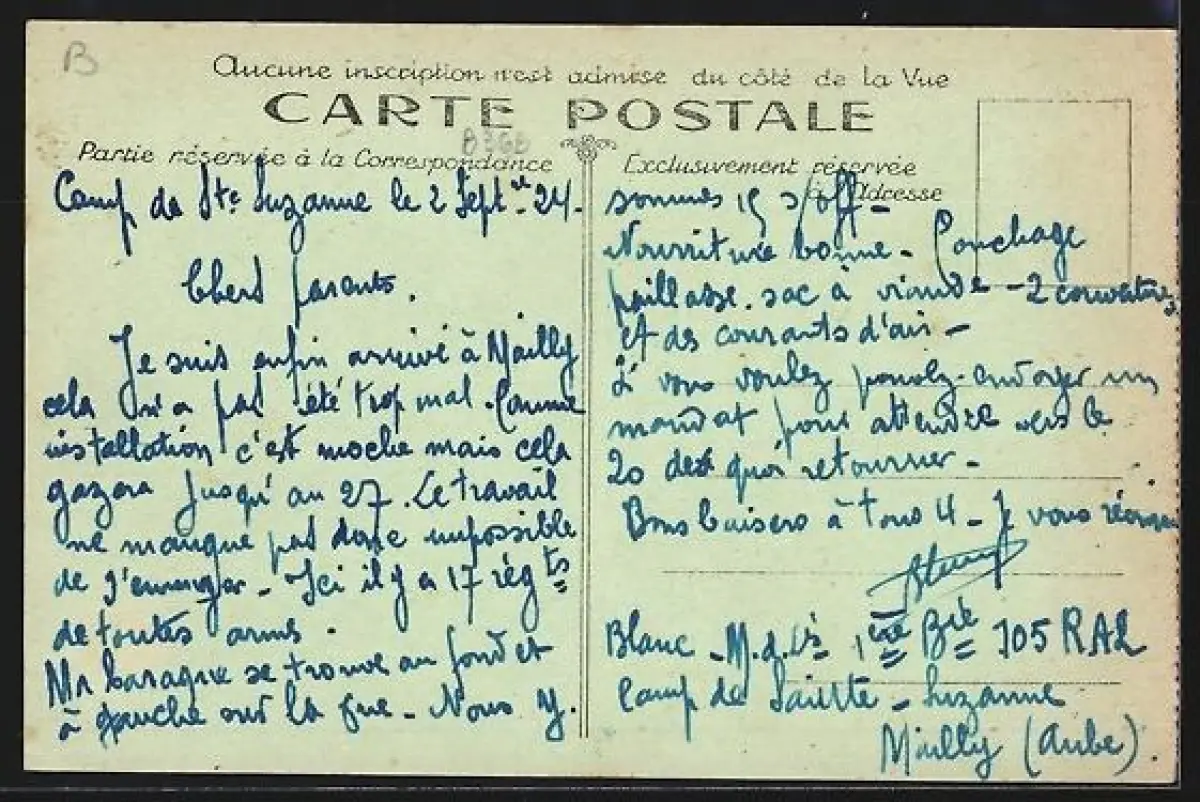 B
Aucune inscription n'est admise du côté de la Vue
CARTE POSTALE
B366
Partie réservée à la Correspondance
Exclusivement réservée
à l'Adresse
Camp de Ste Suzanne le 2 Sept. 24.
Chers parents,
Je suis enfin arrivé à Mailly
cela n'a pas été trop mal. Comme
installation c'est moche mais cela
gazera jusqu'au 27. Le travail
ne manque pas donc impossible
de s'ennuyer - Ici il y a 17 régts
de toutes armes.
Ma baraque se trouve au fond et
à gauche sur la vue - Nous y
sommes 15 s/off -
Nourriture bonne - Couchage
paillasse. sac à viande - 2 couvertures
et des courants d'air -
Si vous voulez pouvez-envoyer un
mandat pour attendre vers le
20 de quoi retourner -
Bons baisers à tous 4 - Je vous
Blanc - M.d.Lis 1ère Bie 105 RAL
Camp de Sainte - Suzanne
Mailly (Aube).